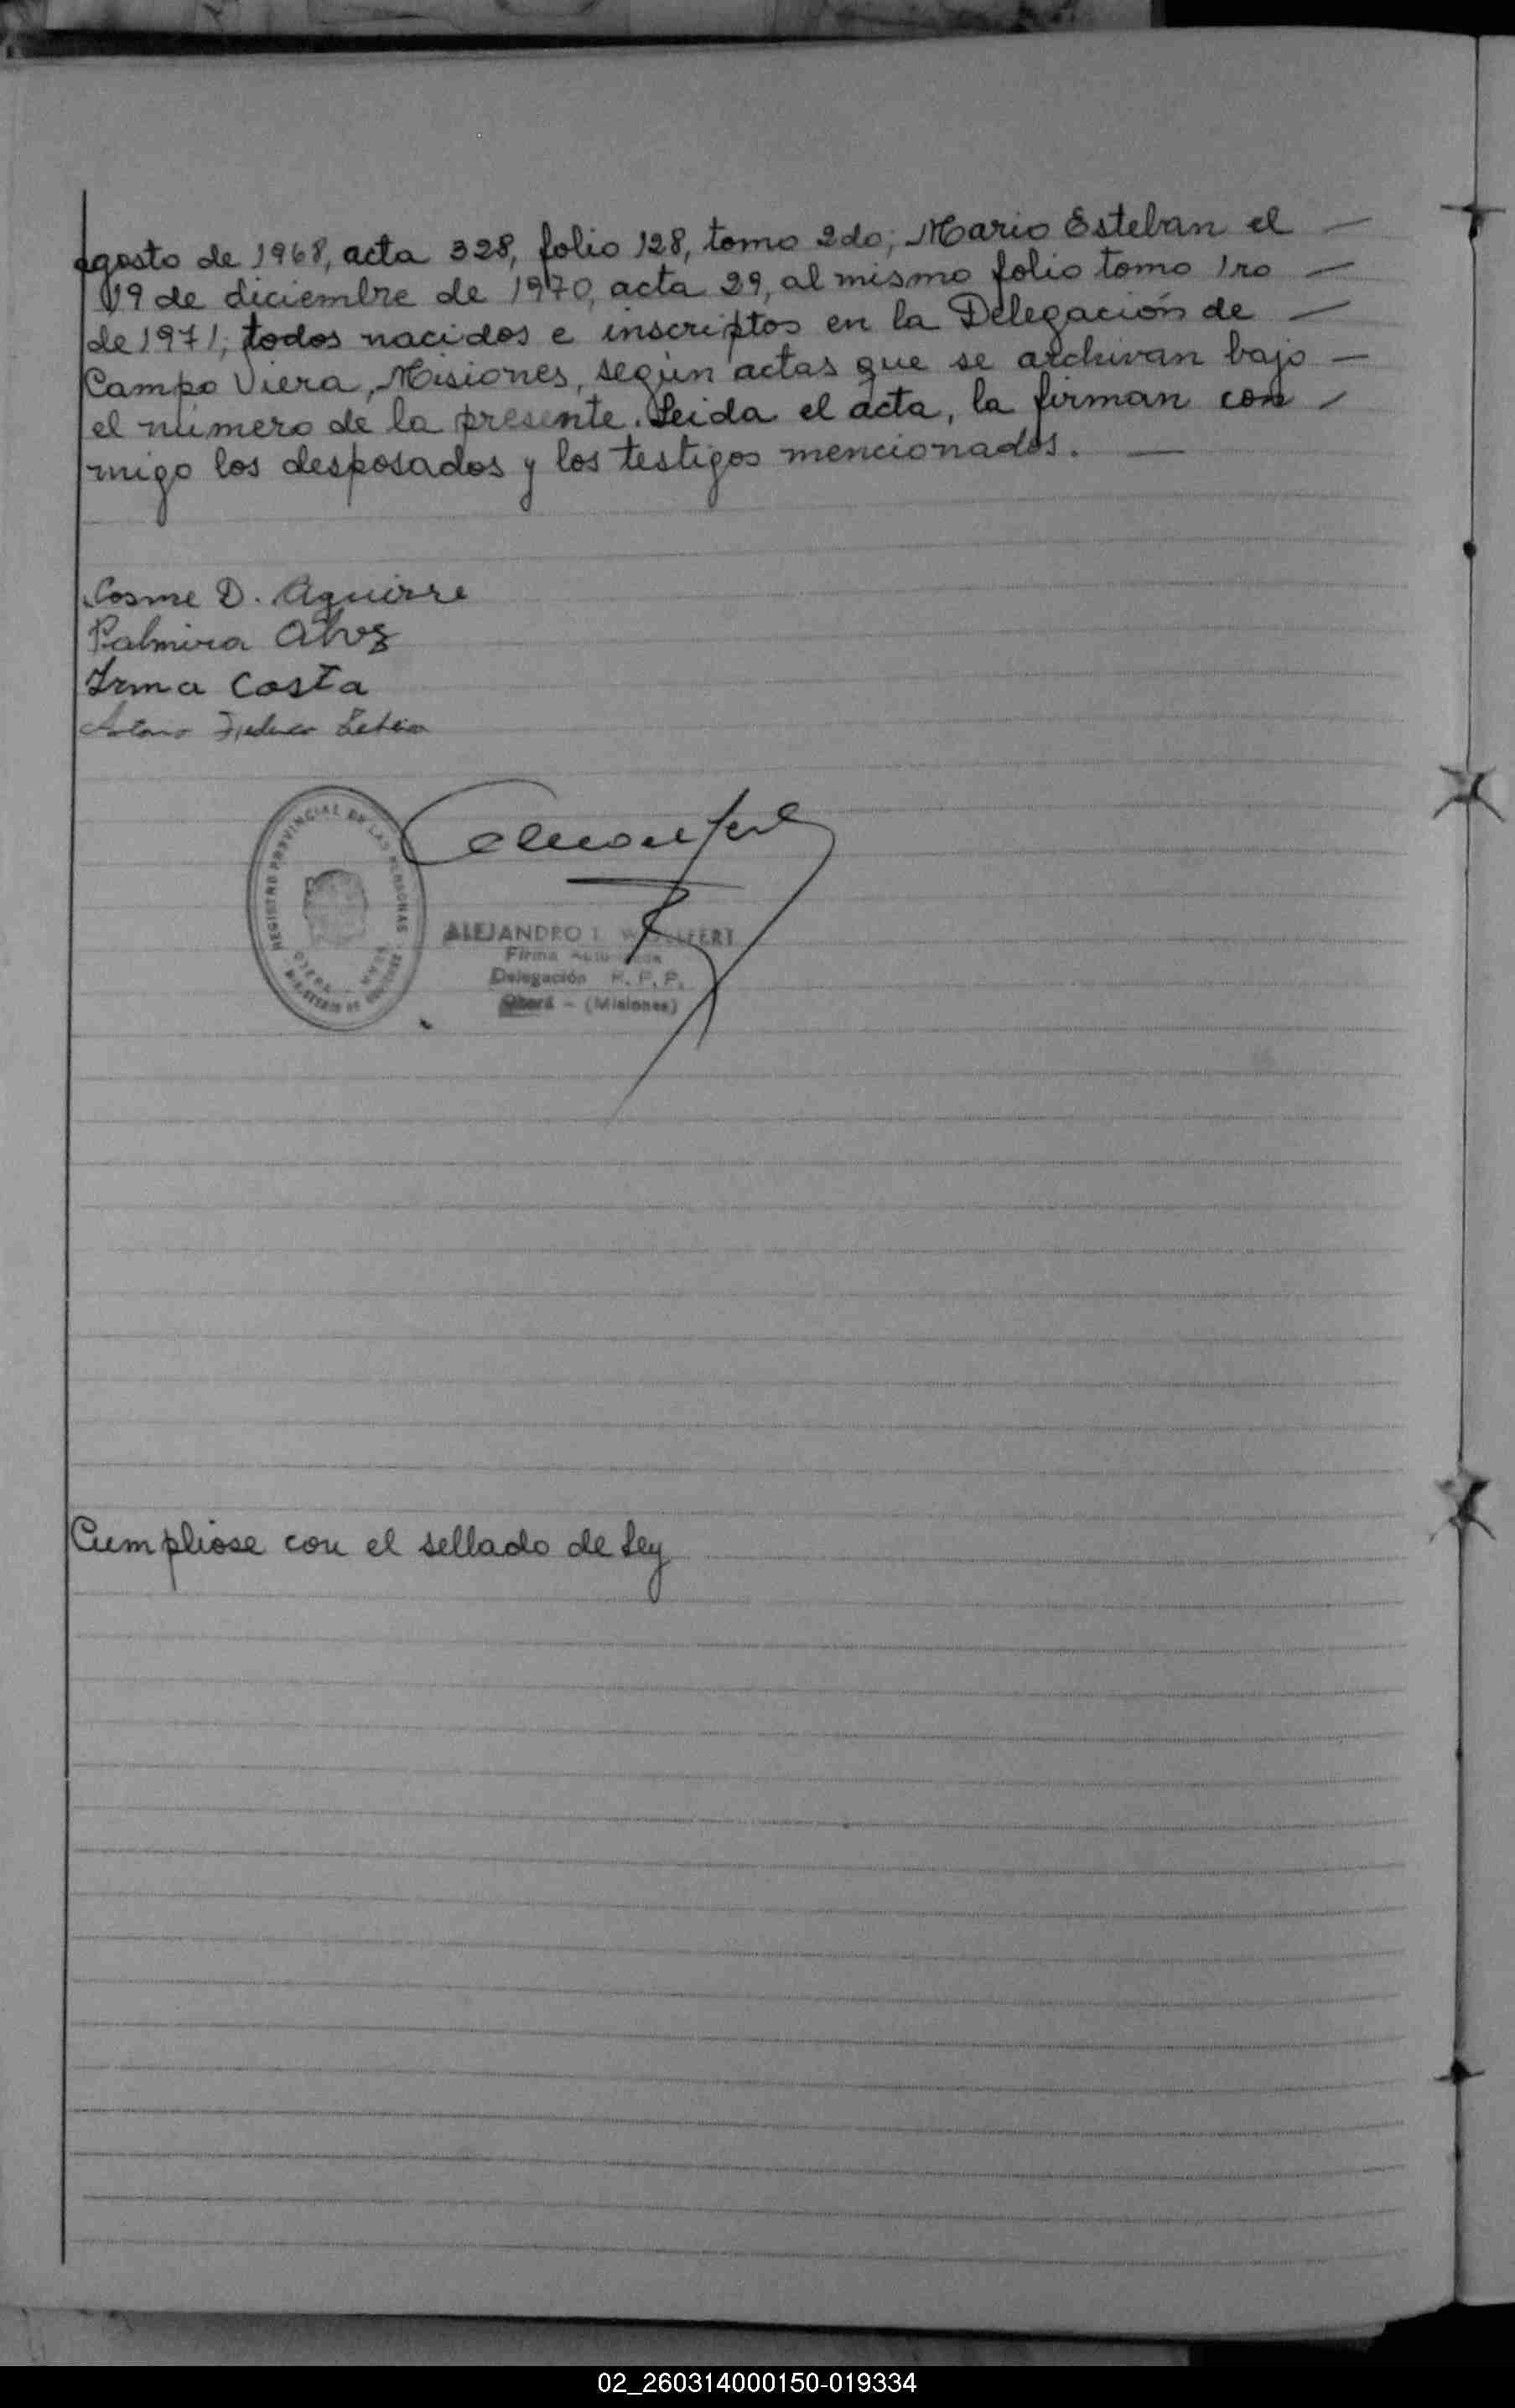 agosto de 1968, acta 328, folio 128, tomo 2do; Mario Esteban el —
19 de diciembre de 1970, acta 29, al mismo folio tomo 1ro —
de 1971; todos nacidos e inscriptos en la Delegación de —
Campo Viera, Misiones, según actas que se archivan bajo —
el número de la presente. Leida el acta, la firman con —
migo los desposados y los testigos mencionados. —
Cosme D. Aguirre
Palmira Alvez
Irma Costa
REGISTRO PROVINCIAL DE LAS PERSONAS
ALEJANDRO
Firma
Delegación R. P. P.
Oberá - (Misiones)
Cumpliose con el sellado de Ley
02_260314000150-019334